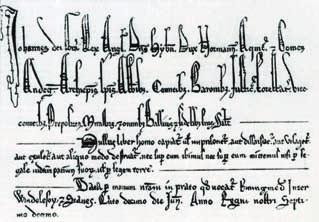 Johannes dei Gra Rex Angl Dns Hybn Dux Normann & Comes
Andeg Archiepis Epis Abbibz Comitibz Baronibz Justic Forestar vice
comitibz Prepositis Ministris & omnibz Ballivis & fidelibus suis Salt
Nullus liber homo capiat ul imprisonet aut dissaisiat aut utlaget
aut exulet aut aliquo modo destruat nec sup eum ibimus nec sup eum mittemus nisi p le
gale iudicium parium suorum ul p legem terre.
Data p manum nram in prato quod vocat Runingmed inter
Windelesor & Stanes. decimo die Jun. Anno Regni nostri Septi
mo decimo